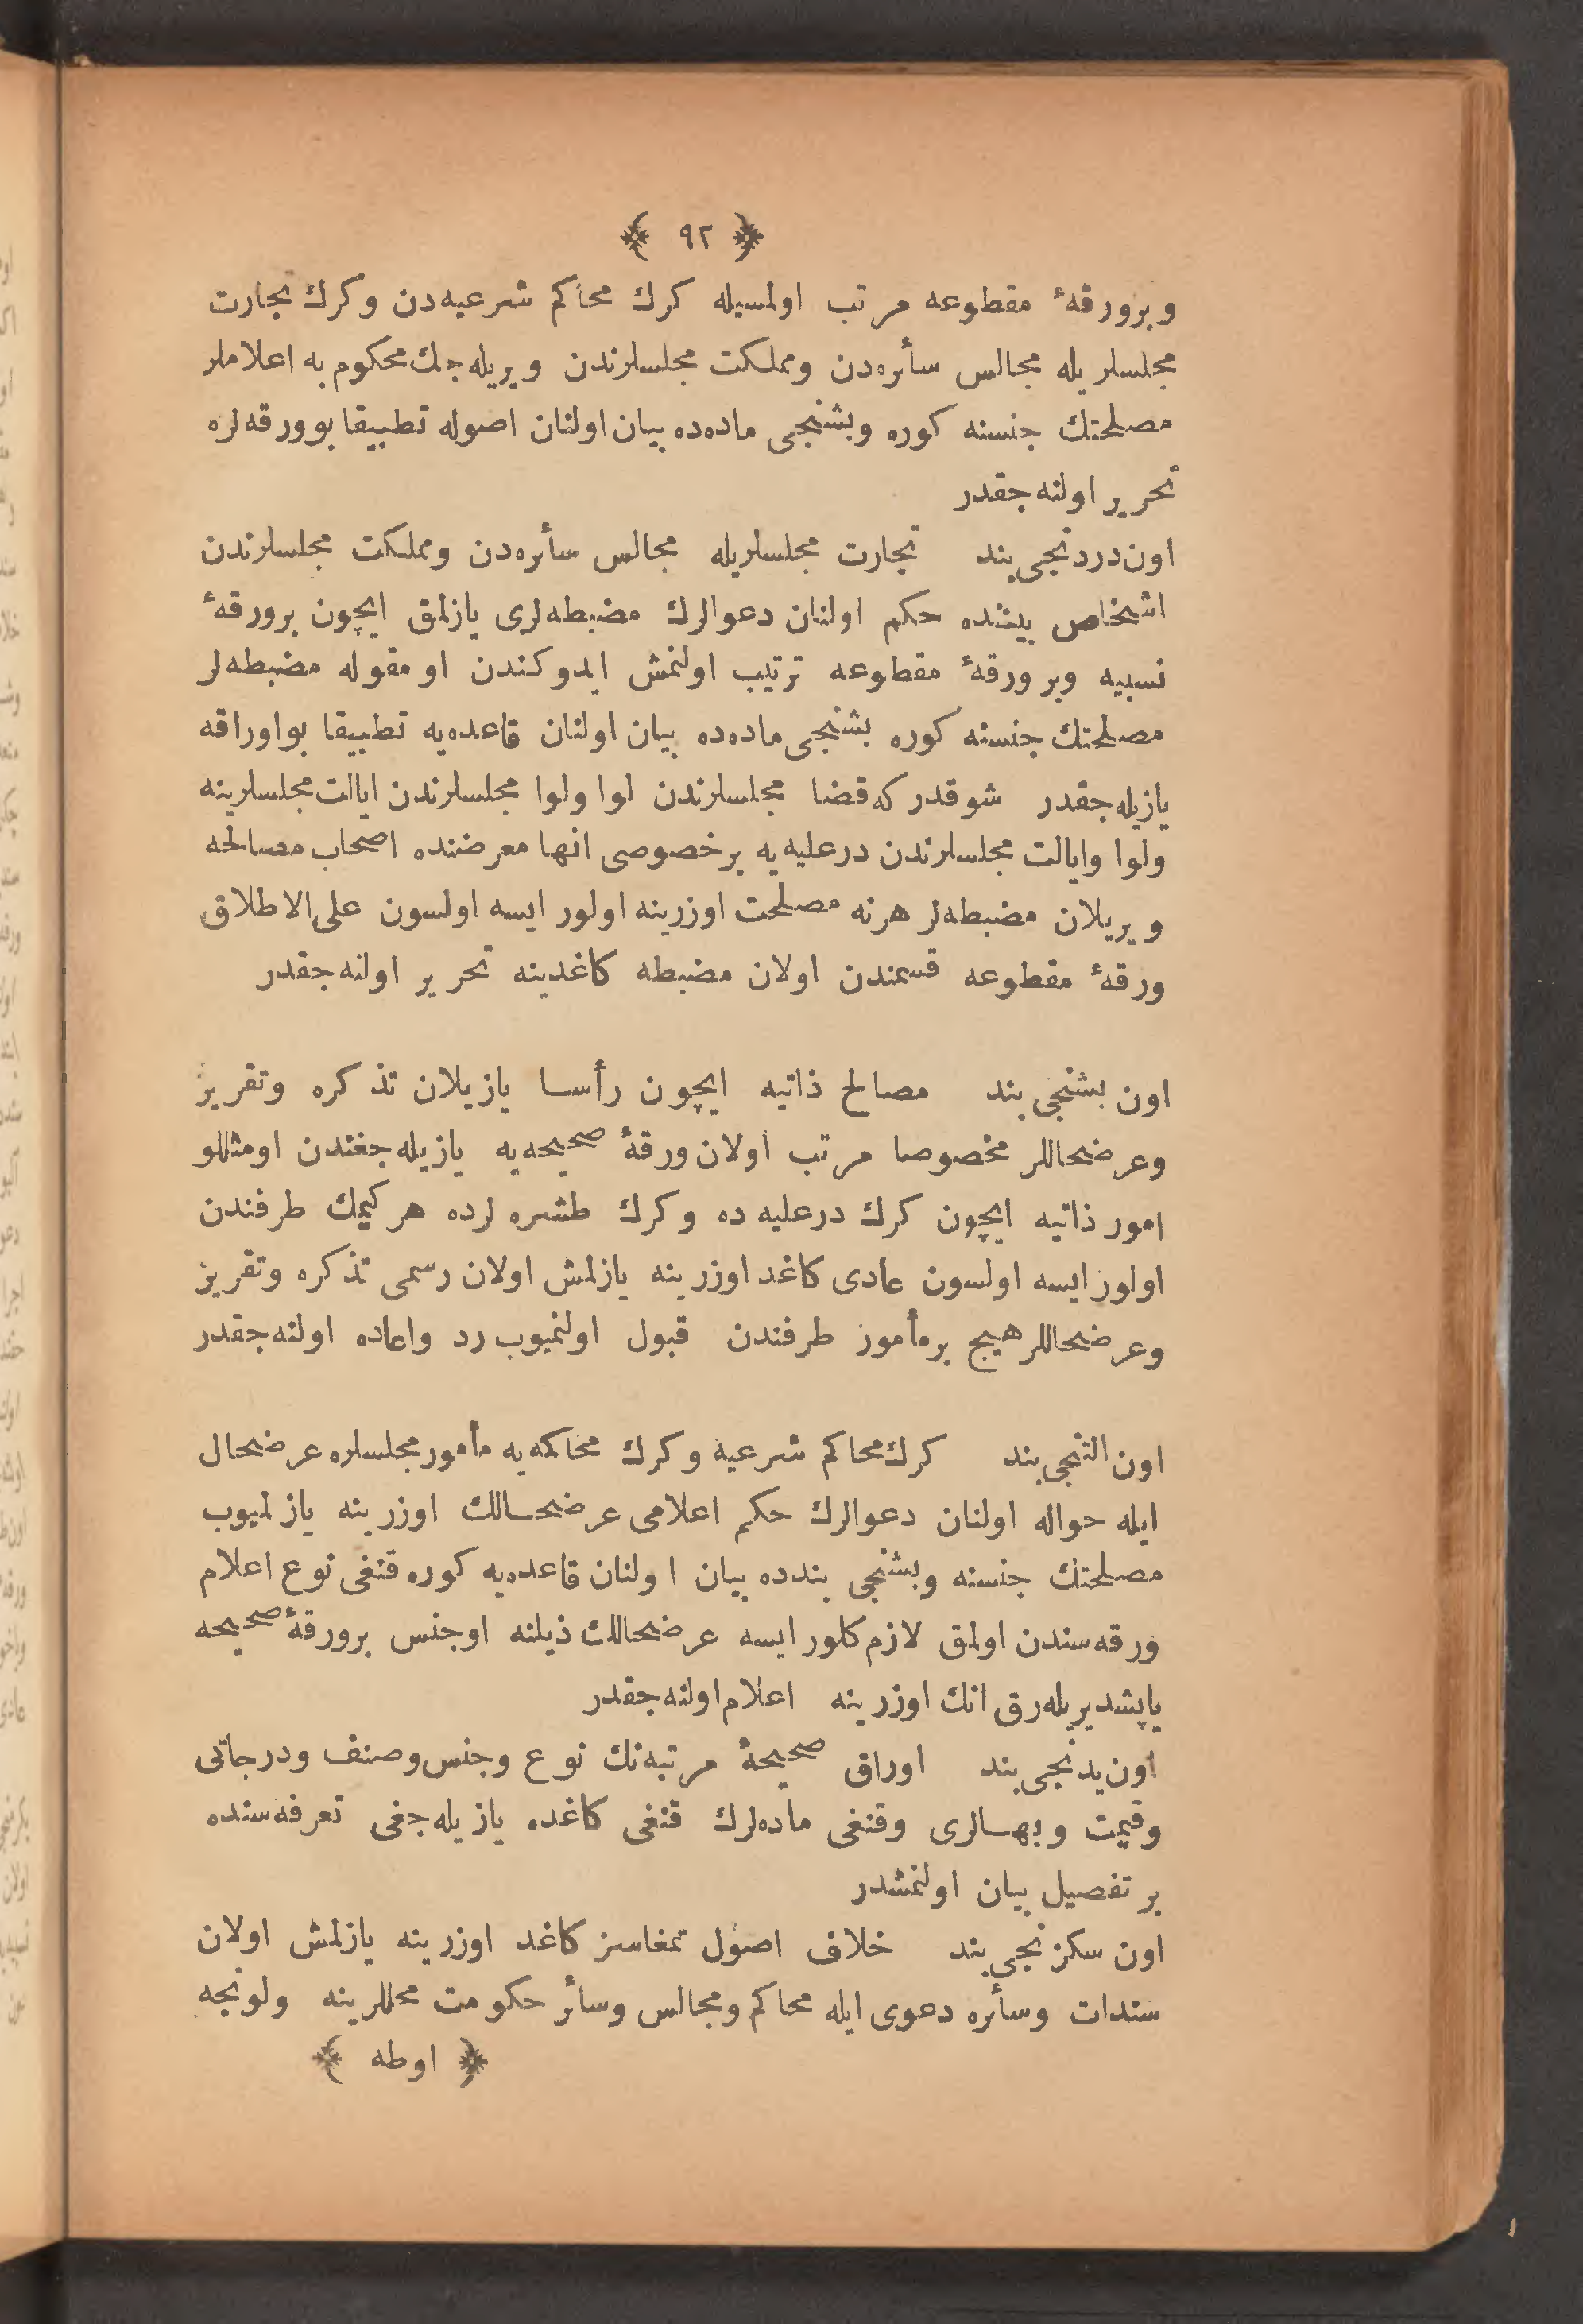 ﴿ ٩٢ ﴾
وبرورقهٔ مقطوعه مرتب اولمسيله كرك محاكم شرعيه‌دن وكرك تجارت
مجلسلريله مجالس سأئره‌دن ومملكت مجلسلرندن ويريله‌جك محكوم به اعلاملر
مصلحتك جنسنه كوره وبشنجى ماده‌ده بيان اولنان اصوله تطبيقا بوورقه‌لره
تحرير اولنه‌جقدر
اون‌دردنجى بند تجارت مجلسلريله مجالس سأئره‌دن ومملكت مجلسلرندن
اشخاص بيننده حكم اولنان دعوالرك مضبطه‌لرى يازلمق ايچون برورقهٔ
نسبيه وبر ورقهٔ مقطوعه ترتيب اولنمش ايدوكندن او مقوله مضبطه‌لر
مصلحتك جنسنه كوره بشنجى ماده‌ده بيان اولنان قاعده‌يه تطبيقا بواوراقه
يازيله‌جقدر شوقدركه قضا مجلسلرندن لوا ولوا مجلسلرندن ايالت مجلسلرينه
ولوا وايالت مجلسلرندن درعليه‌يه برخصوصى انها معرضنده اصحاب مصالحه
ويريلان مضبطه‌لر هرنه مصلحت اوزرينه اولور ايسه اولسون على الاطلاق
ورقهٔ مقطوعه قسمندن اولان مضبطه كاغدينه تحرير اولنه‌جقدر
اون بشنجى بند مصالح ذاتيه ايچون رأسا يازيلان تذكره وتقرير
وعرضحاللر مخصوصا مرتب اولان ورقهٔ صحيحه‌يه يازيله‌جغندن اومثللو
امور ذاتيه ايچون كرك درعليه ده وكرك طشره لرده هركيمك طرفندن
اولور ايسه اولسون عادى كاغد اوزرينه يازلمش اولان رسمى تذكره وتقرير
وعرضحاللر هيچ برمأمور طرفندن قبول اولنميوب رد واعاده اولنه‌جقدر
اون التنجى بند كرك محاكم شرعيه وكرك محاكمه‌يه مأمور مجلسلره عرضحال
ايله حواله اولنان دعوالرك حكم اعلامى عرضحالك اوزرينه يازلميوب
مصلحتك جنسنه وبشنجى بندده بيان اولنان قاعده‌يه كوره قنغى نوع اعلام
ورقه‌سندن اولمق لازم كلور ايسه عرضحالك ذيلنه اوجنس برورقهٔ صحيحه
ياپشديريله‌رق انك اوزرينه اعلام اولنه‌جقدر
اون يدنجى بند اوراق صحيحهٔ مرتبه‌نك نوع وجنس وصنف ودرجاتى
وقيمت وبهالرى وقنغى ماده‌لرك قنغى كاغده يازيله‌جغى تعرفه‌سنده
بر تفصيل بيان اولنمشدر
اون سكزنجى بند خلاف اصول تمغاسز كاغد اوزرينه يازلمش اولان
سندات وسأئره دعوى ايله محاكم ومجالس وسأئر حكومت محللرينه ولونجه
﴿ اوطه ﴾